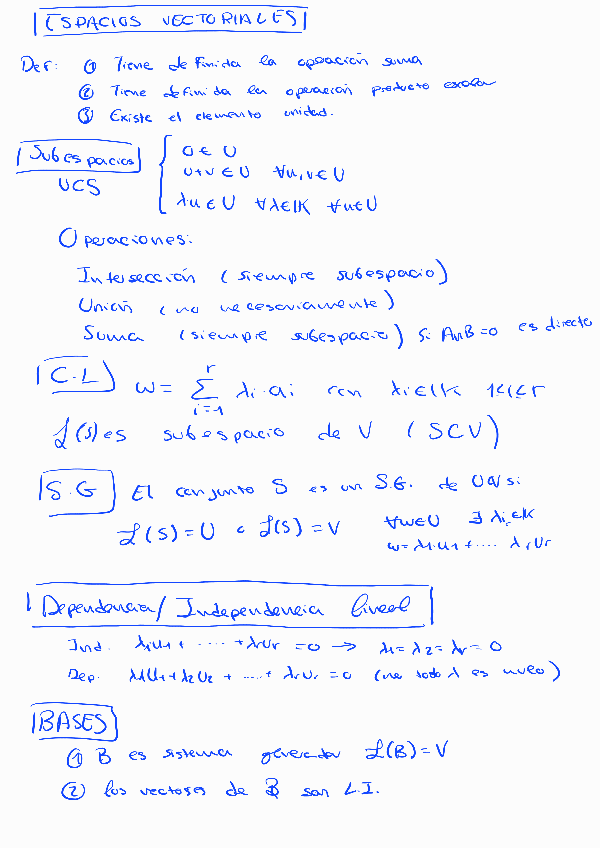 ESPACIOS VECTORIALES
Def: ① Tiene definida la operación suma
② Tiene definida la operación producto escalar
③ Existe el elemento unidad.
Subespacios
U⊂S
0 ∈ U
u+v ∈ U ∀u,v ∈ U
λu ∈ U ∀λ∈K ∀u∈U
Operaciones:
Intersección (siempre subespacio)
Unión (no necesariamente)
Suma (siempre subespacio) Si A∩B=0 es directo
C.L w = ∑_{i=1}^{r} λi·ai con λi∈K 1≤i≤r
L(S) es subespacio de V (S⊂V)
S.G El conjunto S es un S.G. de U o V si:
L(S)=U o L(S)=V ∀w∈U ∃ λi∈K
w=λ1·u1+.... λrUr
Dependencia/Independencia lineal
Ind. λ1u1+ ..... +λrUr =0 → λ1=λ2=λr=0
Dep. λ1U1+λ2U2 + ....+ λrUr =0 (no todo λ es nulo)
BASES
① B es sistema generador L(B)=V
② los vectores de B son L.I.